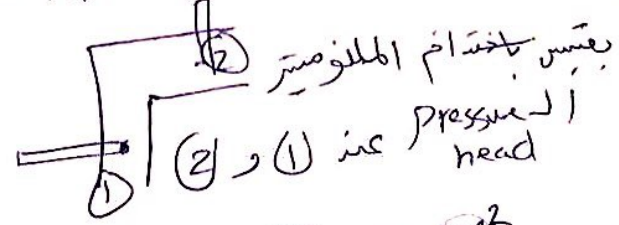 يقيس باستخدام المانوميتر
الـ pressure head عند ① و ②
②
①
2